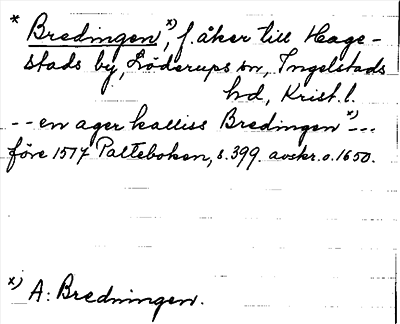 * Bredingen x), f. åker till Hage-
stads by, Löderups sn, Ingelstads
hd, Krist. l.
-- en ager kalliss Bredingen x) --
före 1517 Palteboken, s. 399. avskr. o. 1650.
x) A: Bredningen.